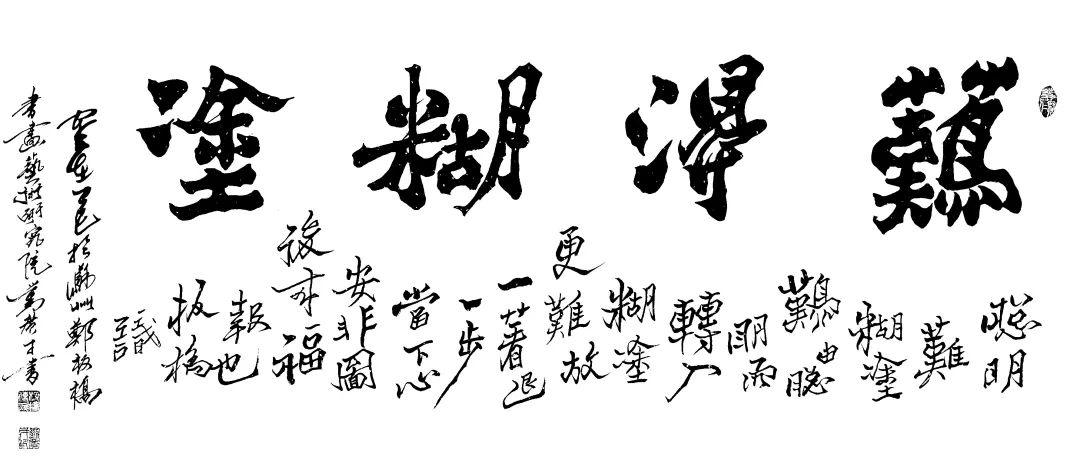 難得糊塗
聰明
難
糊塗
難由聰
明而
轉入
糊塗
更難放
一著退
一步
當下心
安非圖
後來福
報也
板橋
於蘇州鄭板橋
書畫藝術研究院